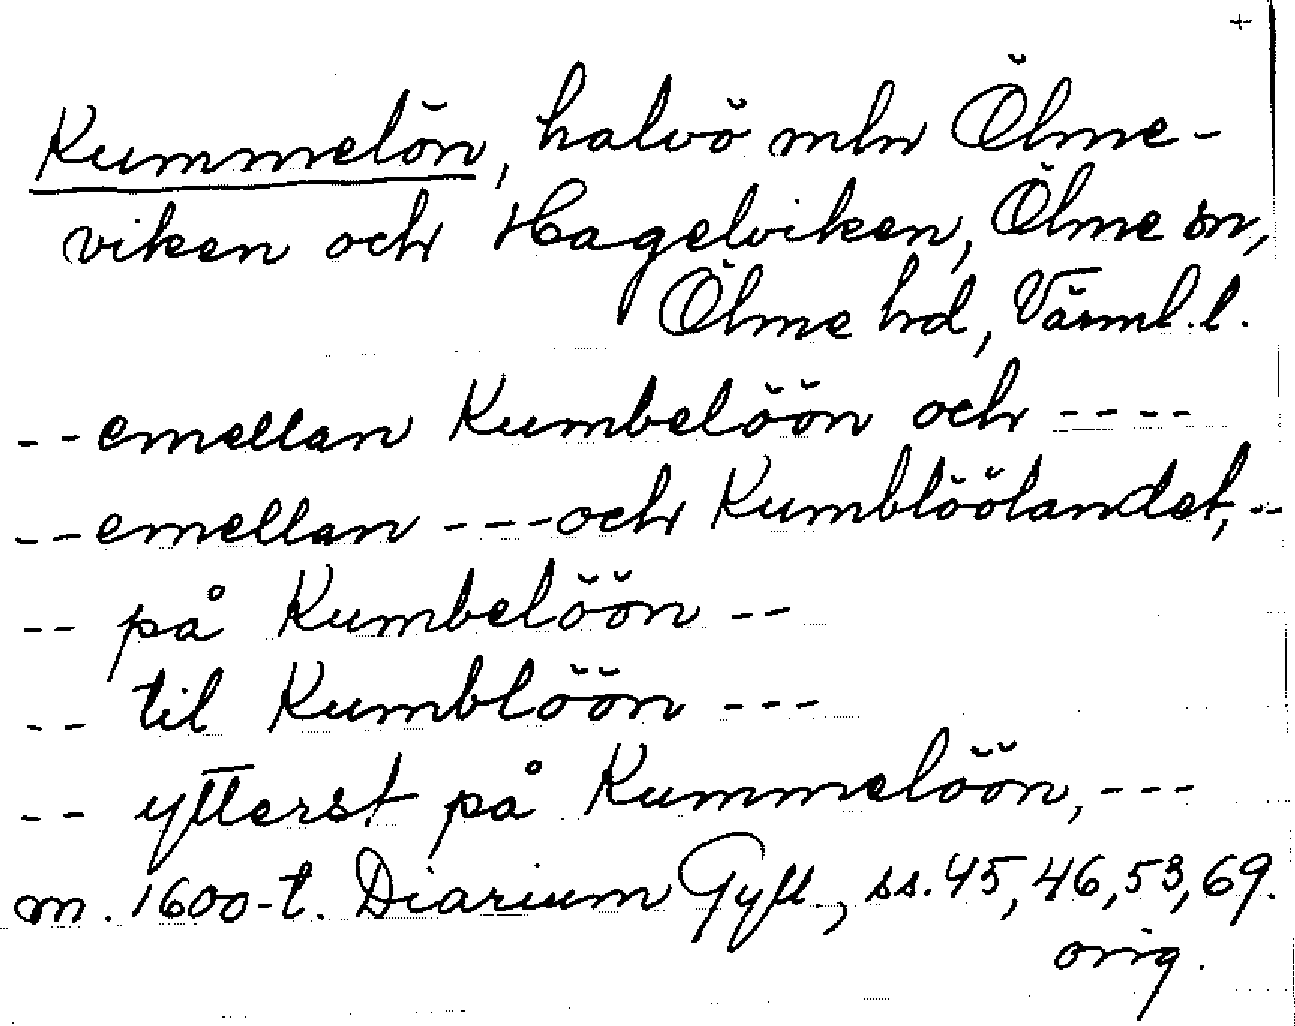 +
Kummelön, halvö mln Ölme-
viken och Hagelviken, Ölme sn,
Ölme hd, Värml. l.
-- emellan Kumbelöön och ----
-- emellan --- och Kumblöölandet, --
-- på Kumbelöön --
-- til Kumblöön ---
-- ytterst på Kummelöön, ---
m. 1600-t. Diarium Gyll., ss. 45, 46, 53, 69.
orig.